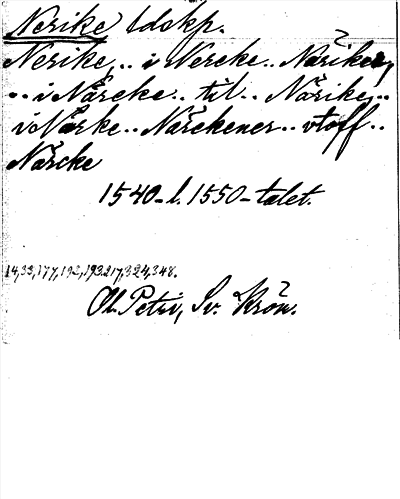 Nerike ldskp.
Nerike, .. i Nercke .. Närike,
.. i Närcke .. til .. Närike, ..
i Närke .. Närckener .. vtoff ..
Närcke
1540-l. 1550-talet.
14, 33, 177, 192, 193, 217, 324, 348.
Ol. Petri, Sv. Krön.